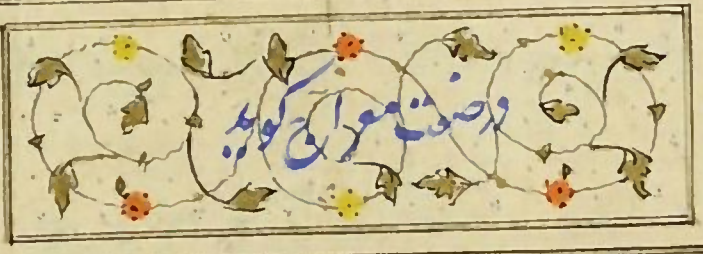 در صفت معراج گوید